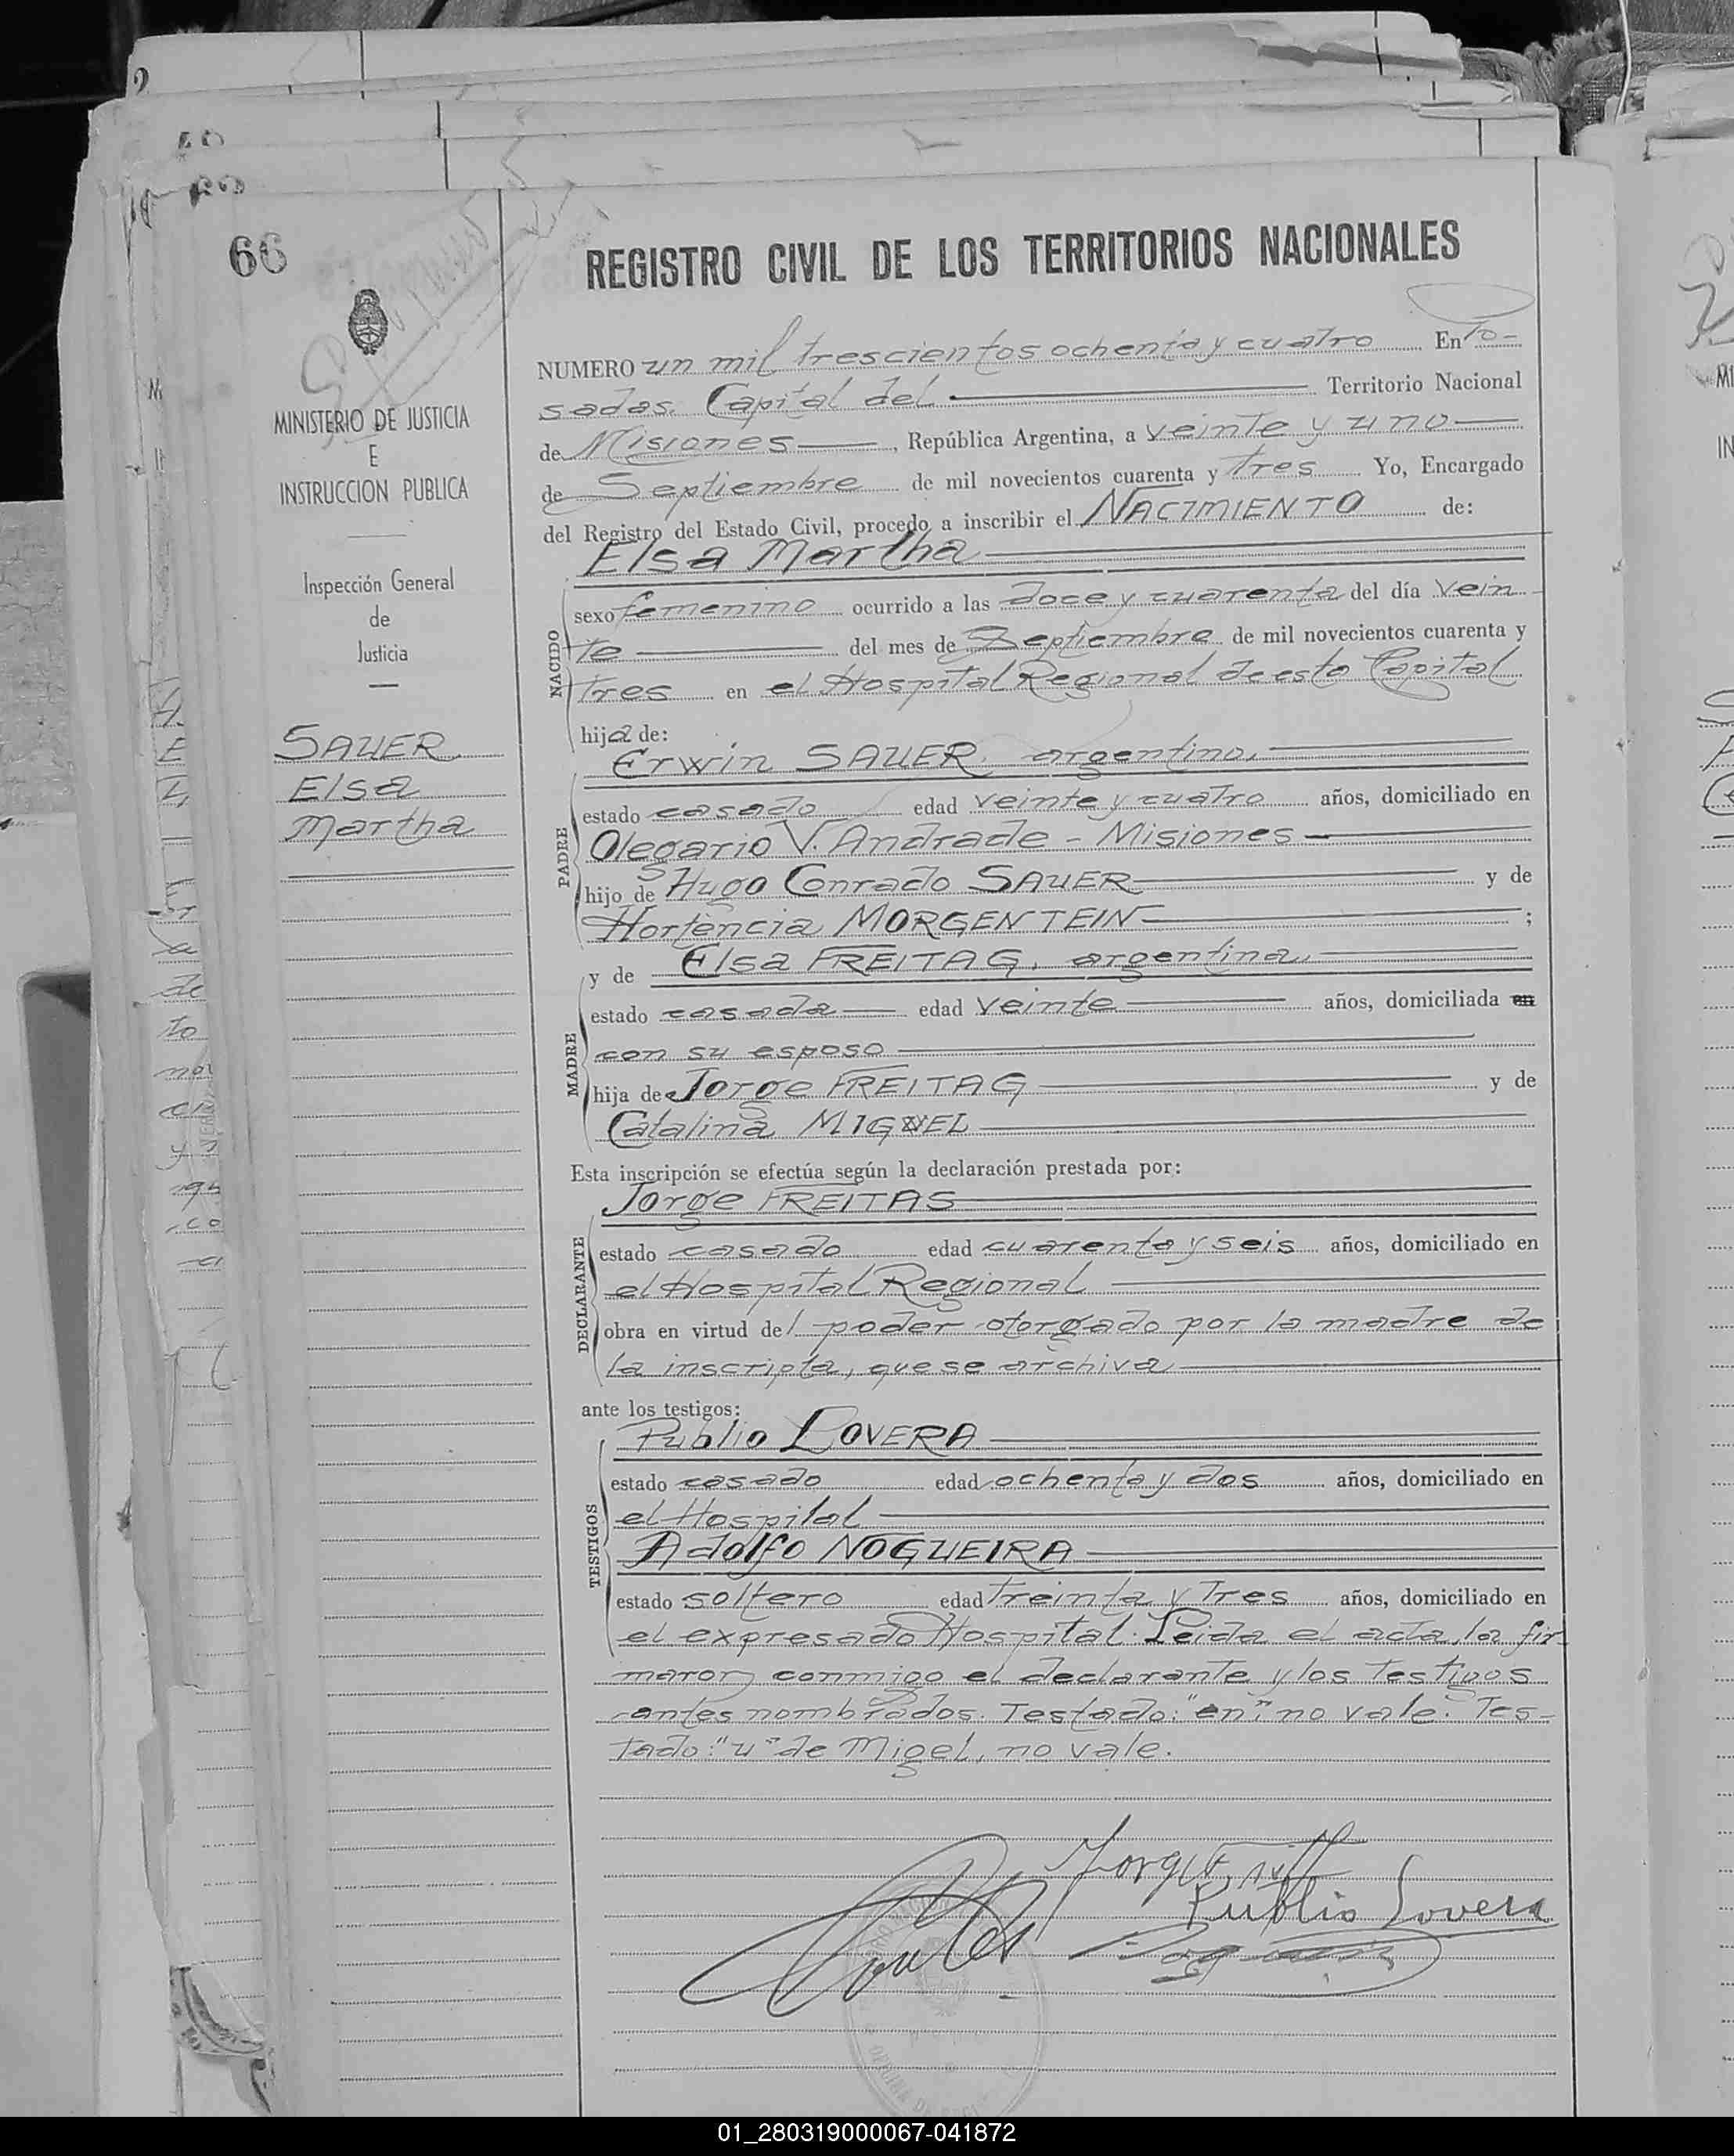 66
REGISTRO CIVIL DE LOS TERRITORIOS NACIONALES
MINISTERIO DE JUSTICIA
E
INSTRUCCION PUBLICA
Inspección General
de
Justicia
SAUER
Elsa
Martha
NUMERO un mil trescientos ochenta y cuatro En Po-
sadas. Capital del Territorio Nacional
de Misiones, República Argentina, a veinte y uno
de Septiembre de mil novecientos cuarenta y tres Yo, Encargado
del Registro del Estado Civil, procedo a inscribir el NACIMIENTO de:
Elsa Martha
NACIDO
sexo femenino ocurrido a las doce y cuarenta del día vein
te del mes de Septiembre de mil novecientos cuarenta y
tres en el Hospital Regional de esta Capital
hija de:
Erwin SAUER, argentino,
PADRE
estado casado edad veinte y cuatro años, domiciliado en
Olegario V. Andrade - Misiones
hijo de Hugo Conrado SAUER y de
Hortencia MORGENTEIN ;
y de Elsa FREITAG, argentina,
MADRE
estado casada edad veinte años, domiciliada en
con su esposo
hija de Jorge FREITAG y de
Catalina MIGUEL
Esta inscripción se efectúa según la declaración prestada por:
Jorge FREITAS
DECLARANTE
estado casado edad cuarenta y seis años, domiciliado en
el Hospital Regional
obra en virtud del poder otorgado por la madre de
la inscripta, que se archiva
ante los testigos:
Publio LOVERA
TESTIGOS
estado casado edad ochenta y dos años, domiciliado en
el Hospital
Adolfo NOGUEIRA
estado soltero edad treinta y tres años, domiciliado en
el expresado Hospital. Leida el acta, la fir-
maron conmigo el declarante y los testigos
antes nombrados. Testado: "en" no vale. Tes-
tado: "u" de Migel, no vale.
Publio Lovera
01_280319000067-041872